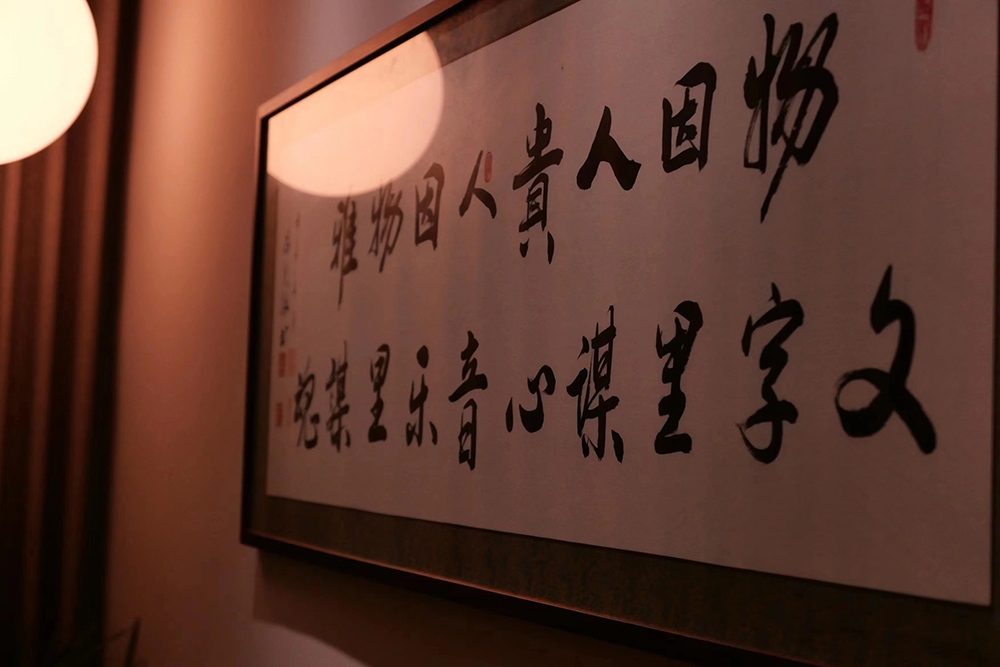 物因人貴人因物雅
文字里谋心音乐里谋